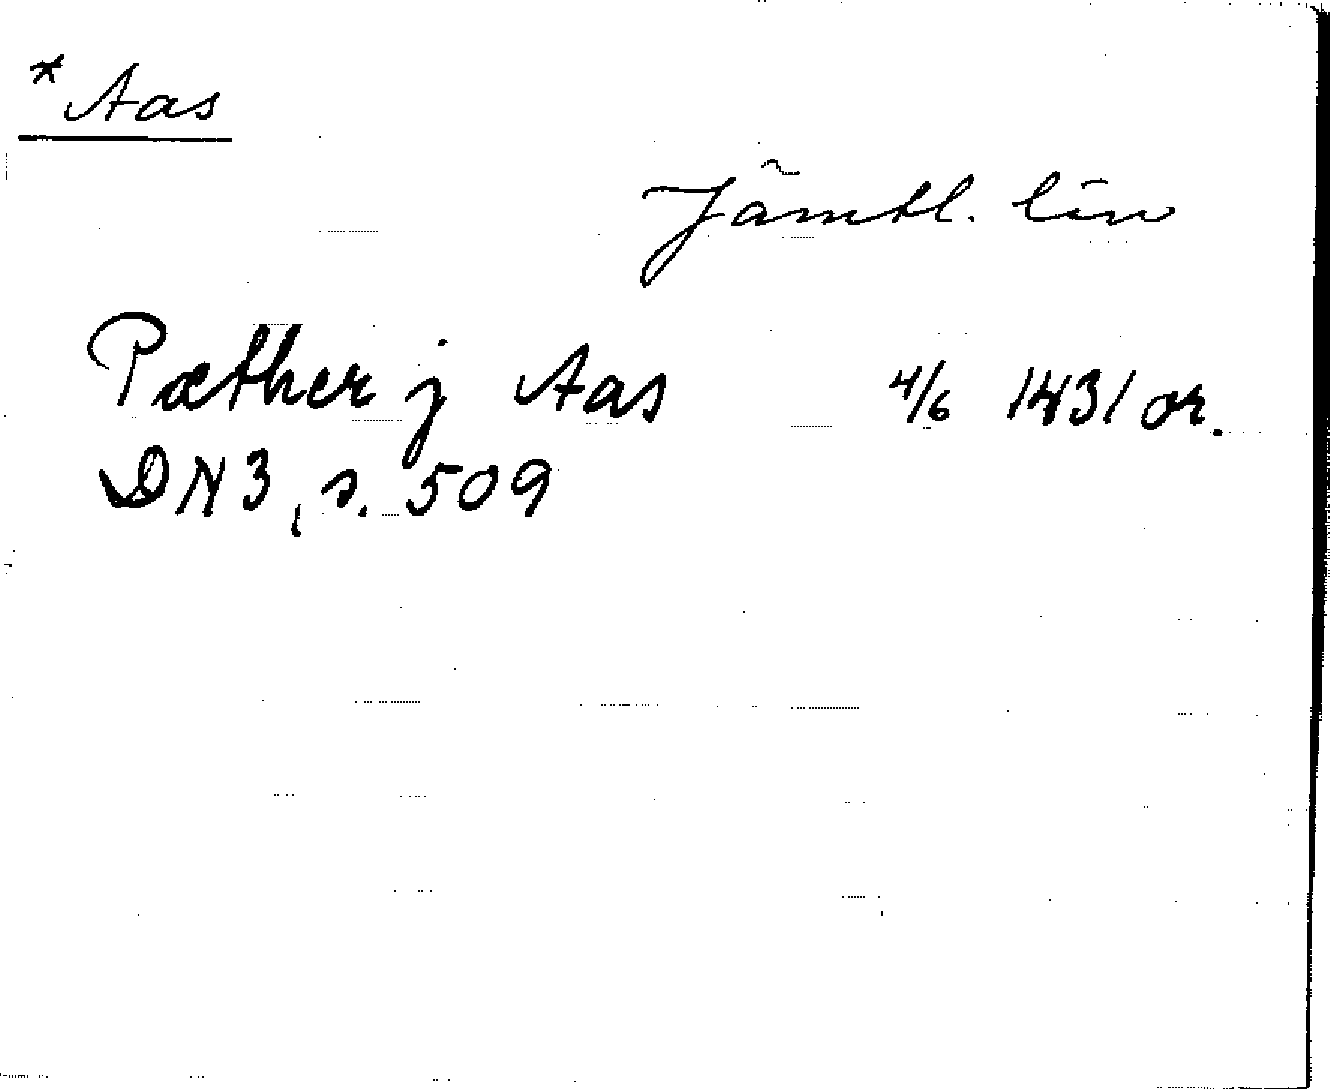 *Aas
Jämtl. län
Pæther j Aas 4/6 1431 or.
DN 3, s. 509